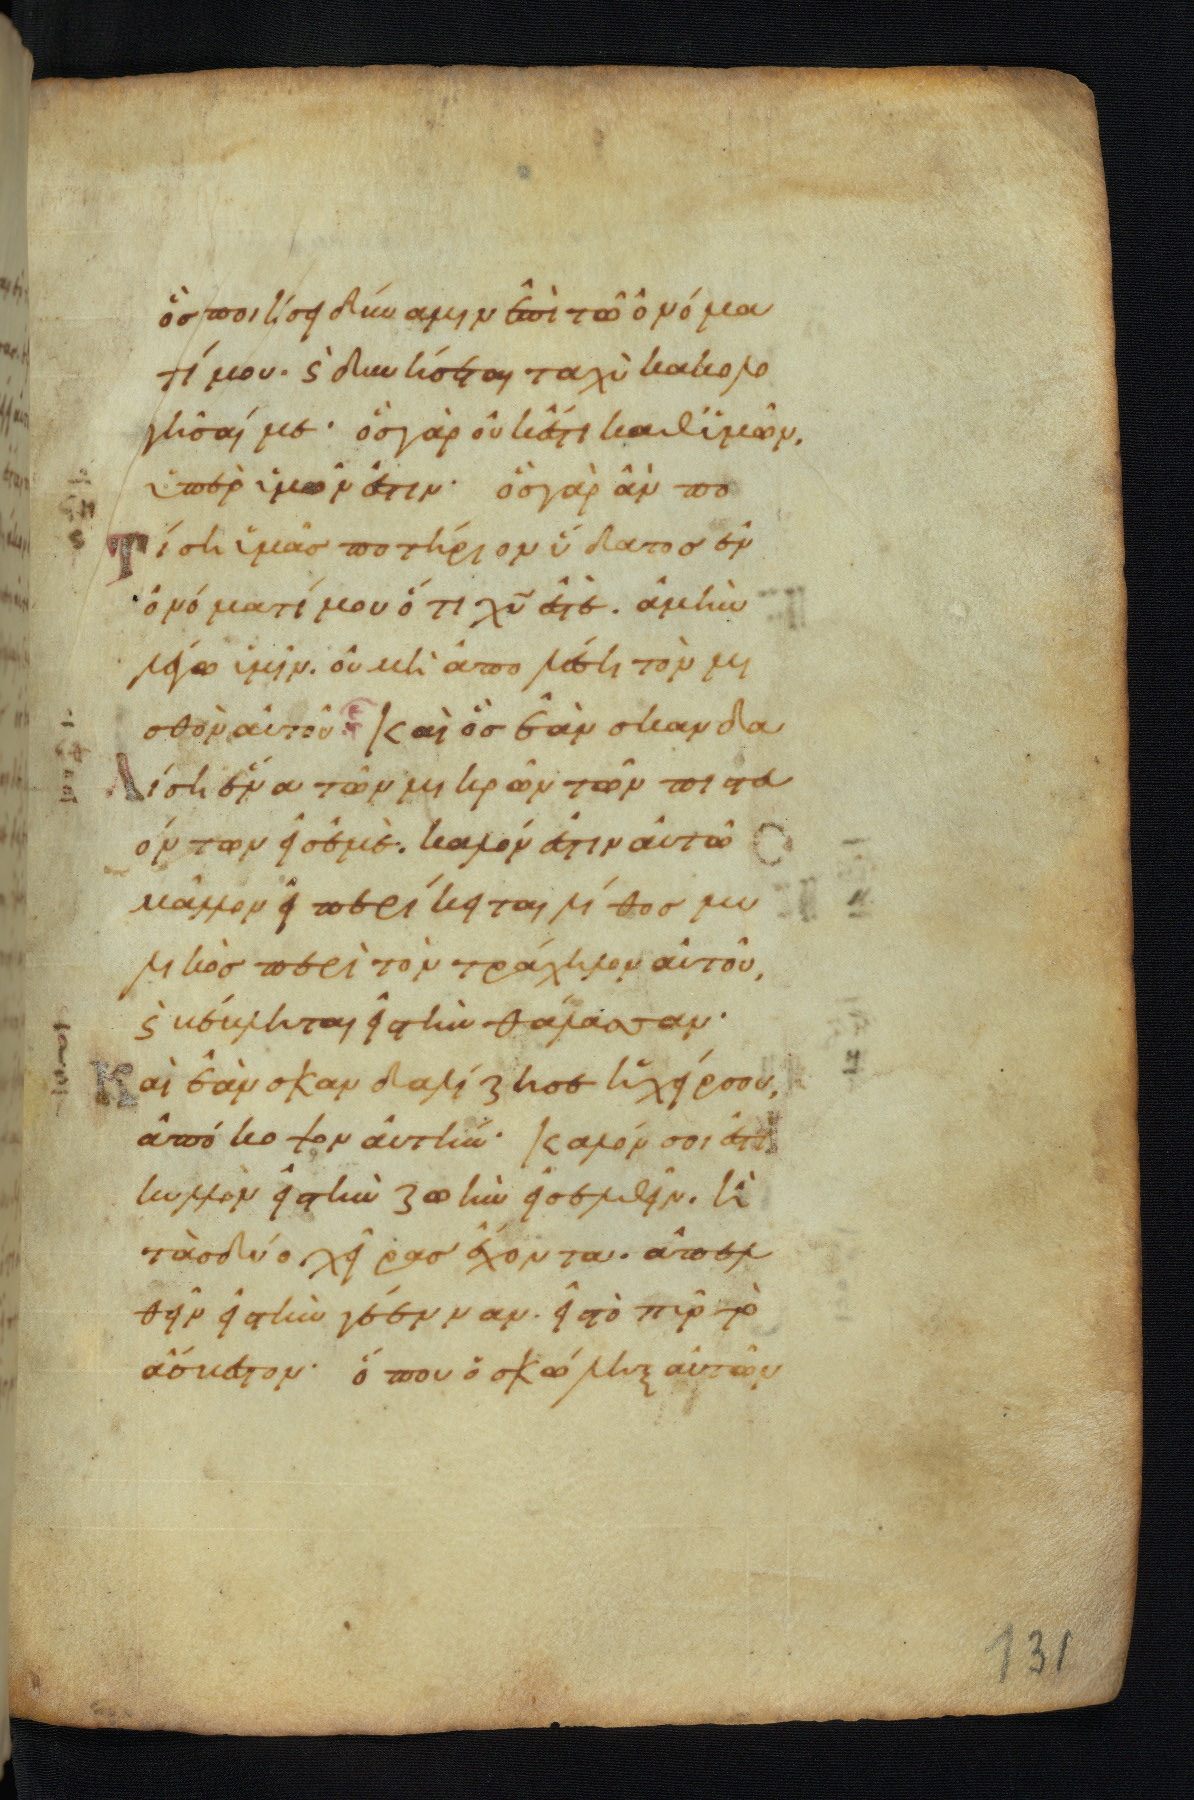 ὃσ ποιήσει δύναμιν ἐπὶ τῶ ὀνόμα
τί μου· ϛ δυνήσεται ταχὺ κακολο
γῆσαί με· ὃσ γὰρ οὐκ ἔστι καθ ὑμῶν,
ὑπὲρ ὑμῶν ἐστιν· ὃσ γὰρ ἂν πο
τίση ὑμᾶσ ποτήριον ὕδατοσ ἐν
ὀνόματί μου ὅτι χυ ἐστὲ. ἀμὴν
λέγω ὑμῖν. οὐ μὴ ἀπολέση τὸν μι
σθὸν αὐτοῦ· Καὶ ὃσ ἐὰν σκανδα
λίση ἕνα τῶν μικρῶν τῶν πιστευ
όντων εἰσ ἐμὲ. καλόν ἐστιν αὐτῶ
μᾶλλον εἰ περίκειται λίθοσ μυ
λικὸσ περὶ τὸν τράχηλον αὐτοῦ,
ϛ βέβληται εἰσ τὴν θάλασσαν·
Καὶ ἐὰν σκανδαλίζη σε ἡ χείρ σου,
ἀπόκοψον αὐτήν· Καλόν σοι ἐστι
κυλλὸν εἰσ τὴν ζωὴν εἰσελθεῖν. ἢ
τὰσ δύο χεῖρασ ἔχοντα. ἀπελ
θεῖν εἰσ τὴν γέενναν. εἰσ τὸ πῦρ τὸ
ἄσβεστον· ὅπου ὁ σκώληξ αὐτῶν
131